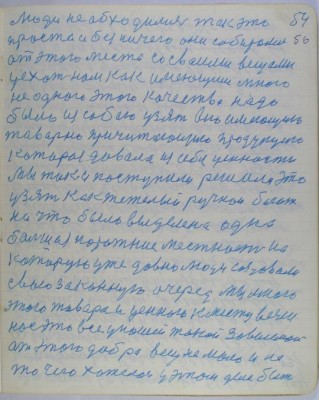 люди необходимых так это 54
проста и без ничего они собирали 56
от этого места со своими вещами
уехат нам как имеющим много
не одного этого качества надо
было из собою узят
таварно причитающию продукцию
катарая давала из себя ценности
мы так и поступили решили это
узят как тяжелый ручной багаж
на что было выделена одна
балшая местност на
каторую уже давно люди создовали
свою законную очеред мы много
этого товара и ценного к месту
нос это все у нашей такой
от этого добра вещ на мало и не
то чего хотелос у этом деле быт